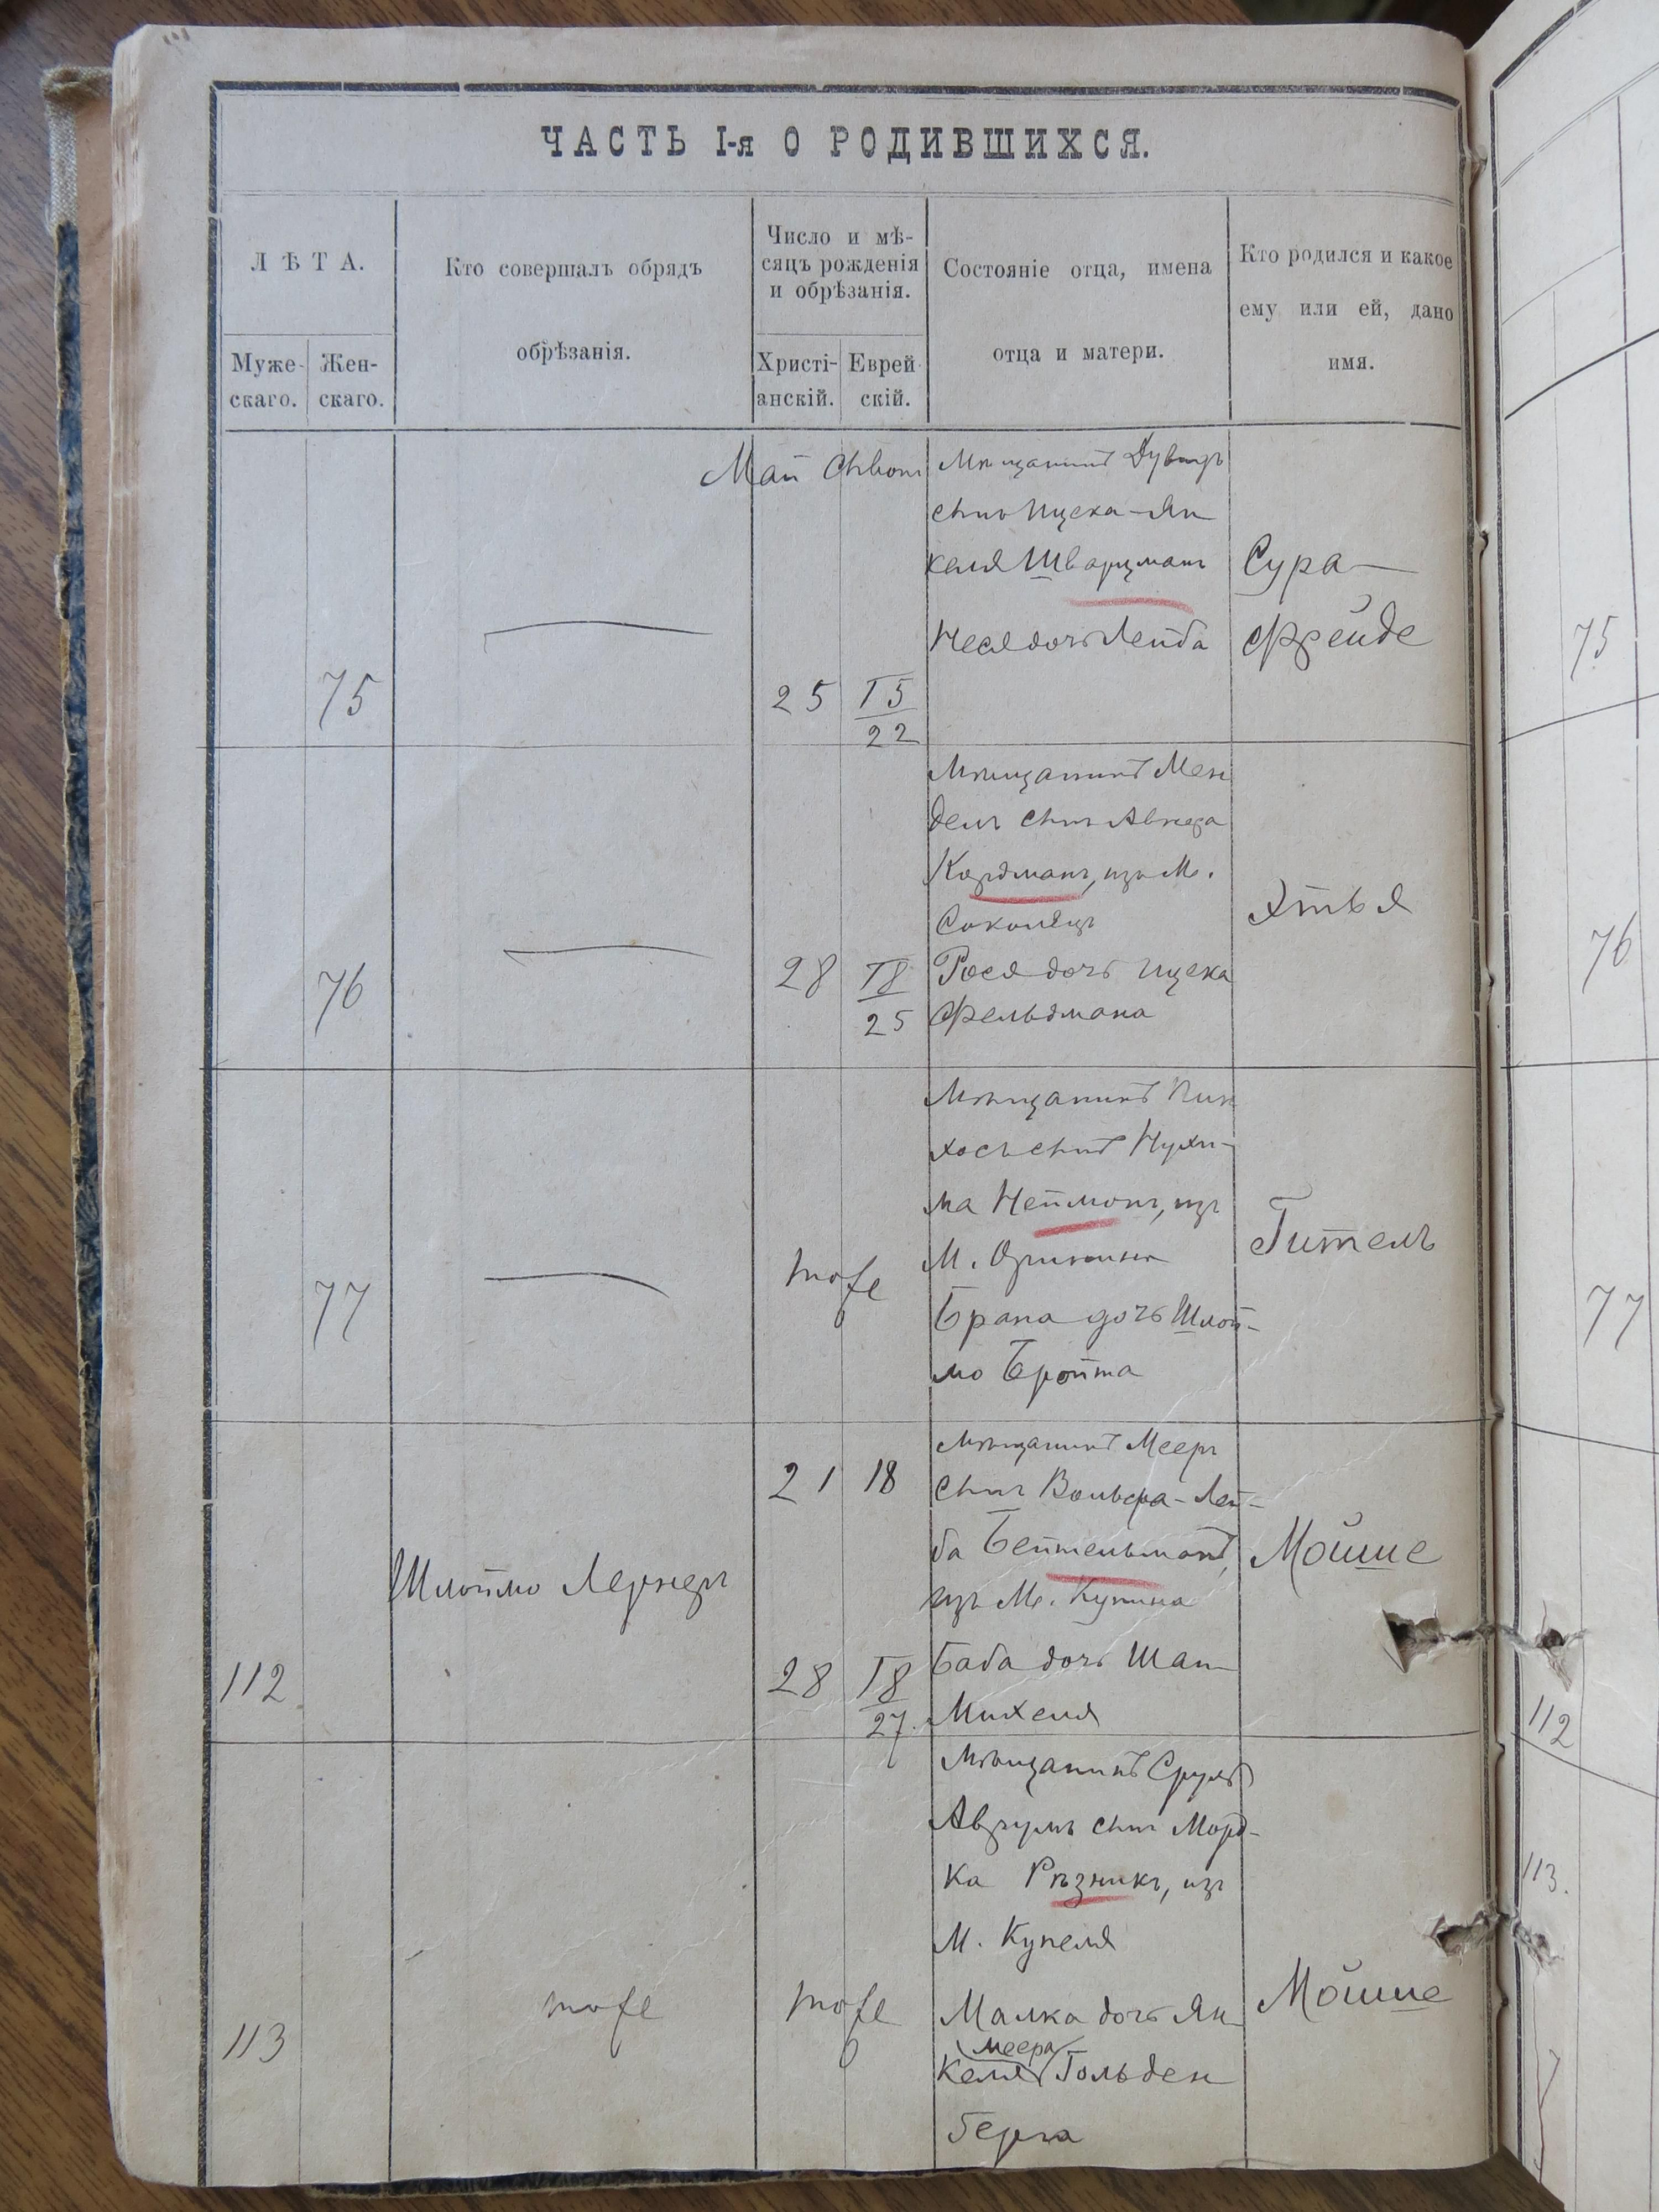 ЧАСТЬ I-я О РОДИВШИХСЯ.
ЛѢТА.
Муже-
скаго.
Жен-
скаго.
Кто совершалъ обрядъ
обрѣзанія.
Число и мѣ-
сяцъ рожденія
и обрѣзанія.
Христі-
анскій.
Еврей
скій.
Состояніе отца, имена
отца и матери.
Кто родился и какое
ему или ей, дано
имя.
Май
75
—
25
15
22
Мѣщанинъ Дувидъ
сынъ Ицека-Ян
келя Шварцманъ
Неся дочь Лейба
Сура-
Фрейде
75
76
—
28
18
25
Мѣщанинъ Мен
дель сынъ
из М.
Рося дочь Ицека
Фельдмана
Этья
76
77
—
тоже
Мѣщанинъ Пин
хосъ сынъ Нухи-
ма Нейманъ, изъ
М.
Брана дочь Шлой-
мо Бройта
Гитель
77
112
Шлоймо Лернеръ
21
18
28
18
27.
Мѣщанинъ Мееръ
сынъ Вольфа-Лей-
ба Бейтельманъ,
изъ М. Купина
Баба дочь
Михеля
Мойше
112
113
тоже
тоже
Мѣщанинъ Сруль
Аврумъ сынъ Морд-
ка Рѣзникъ, изъ
М. Купеля
Малка дочь Ян
меера
келя Гольден
берга
Мойше
113.